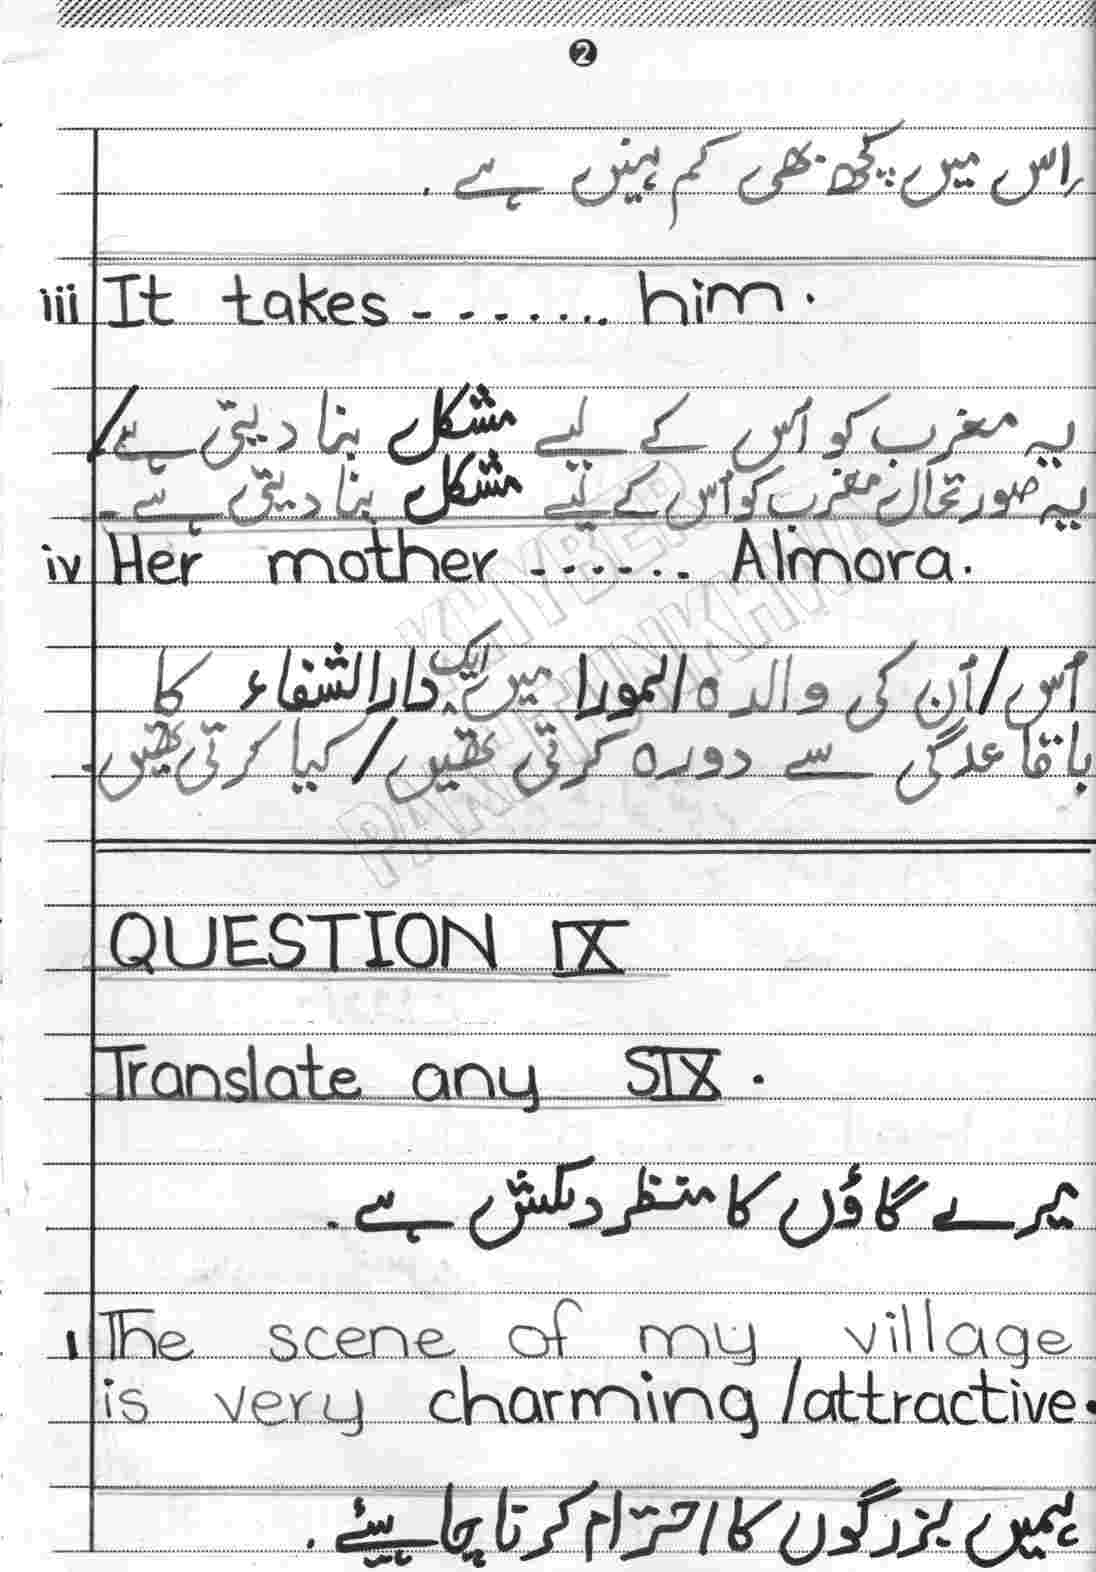 2
اِس میں کچھ بھی کم نہیں ہے ۔
iii It takes - - - - - - .. him.
یہ مغرب کو اُس کے لیے مشکل بنا دیتی ہے/
یہ صورتحال مغرب کو اُس کے لیے مشکل بنا دیتی ہے ۔
iv Her mother - - - - - - Almora.
اُس/اُن کی والدہ المورا میں ایک دارالشفاء کا
باقاعدگی سے دورہ کرتی تھیں/کیا کرتی تھیں ۔
KHYBER
PAKHTUNKHWA
QUESTION IX
Translate any SIX.
میرے گاؤں کا منظر دلکش ہے ۔
1 The scene of my village
is very charming/attractive.
ہمیں بزرگوں کا احترام کرنا چاہیئے ۔